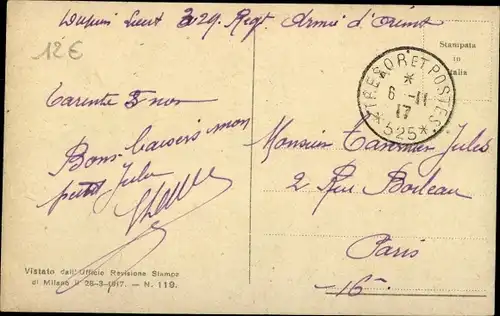 Lieut 329. Regt. Armée d'Orient
12€
Stampata
in
Italia
TRESOR ET POSTES
*
6-11
17
*525*
Tarente 5 nov
Bons baisers mon
petit Jules
Monsieur Tavernier Jules
2 Rue Boileau
Paris
16e
Vistato dall'Ufficio Revisione Stampe
di Milano il 28-3-1917. - N. 119.